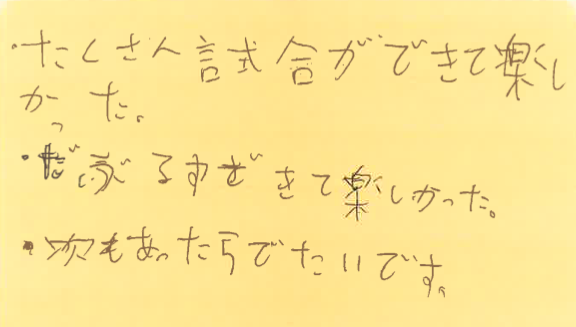 ・たくさん試合ができて楽し
かった。
・だぶるす きて楽しかった。
・次もあったらでたいです。